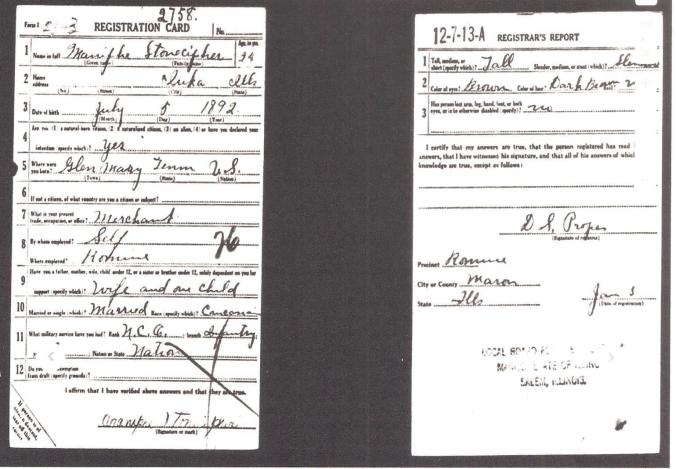 2758.
Form 1 REGISTRATION CARD No.
1 Name in full Maniphe Stonecipher Age, in yrs. 24
(Given name) (Family name)
2 Home address Iuka Ills
(No.) (Street) (City) (State)
3 Date of birth July 5 1892
(Month) (Day) (Year)
4 Are you (1) a natural-born citizen, (2) a naturalized citizen, (3) an alien, (4) or have you declared your
intention (specify which)? yes
5 Where were you born? Glen Mary Tenn U.S.
(Town) (State) (Nation)
6 If not a citizen, of what country are you a citizen or subject?
7 What is your present trade, occupation, or office? Merchant
8 By whom employed? Self 26
Where employed? Romine
9 Have you a father, mother, wife, child under 12, or a sister or brother under 12, solely dependent on you for
support (specify which)? Wife and one child
10 Married or single (which)? Married Race (specify which)?
11 What military service have you had? Rank N.C.O. ; branch Infantry
; Nation or State Nation
12 Do you exemption from draft (specify grounds)?
I affirm that I have verified above answers and that they are true.
(Signature or mark)
If person is of African descent, tear off this corner
12-7-13-A REGISTRAR'S REPORT
1 Tall, medium, or short (specify which)? Tall Slender, medium, or stout (which)?
2 Color of eyes? Brown Color of hair? Dark Brown
3 Has person lost arm, leg, hand, foot, or both eyes, or is he otherwise disabled (specify)? no
I certify that my answers are true, that the person registered has read
answers, that I have witnessed his signature, and that all of his answers of which
knowledge are true, except as follows:
D S, Proper
(Signature of registrar)
Precinct Romine
City or County Marion
State Ills
(Date of registration)
LOCAL BOARD
SALEM, ILLINOIS.